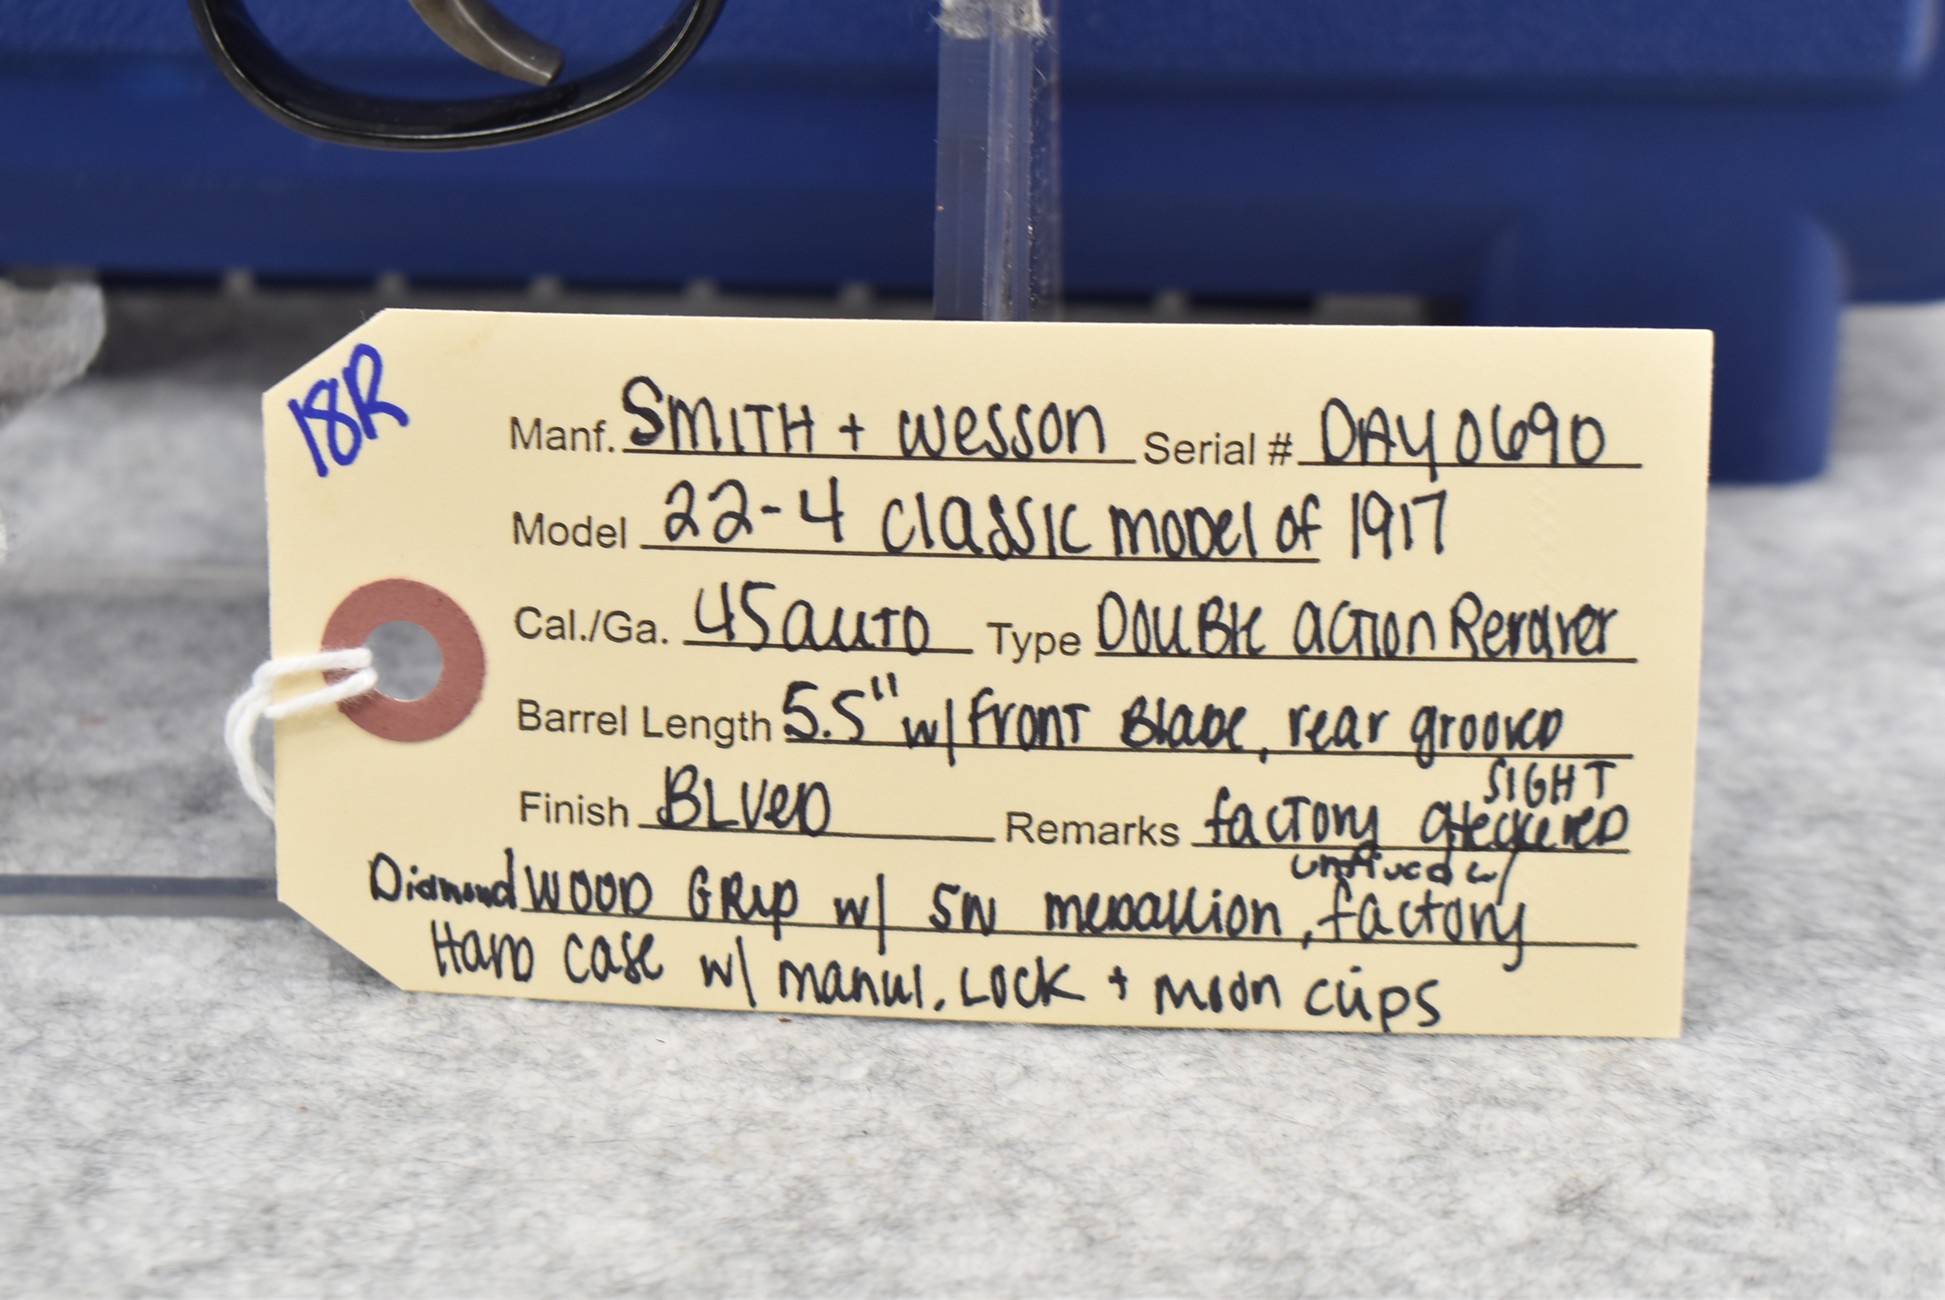 18R
Manf. SMITH + Wesson Serial # DAY0690
Model 22-4 Classic Model of 1917
Cal./Ga. 45 auto Type Double action Revolver
Barrel Length 5.5" w/ front Blade, rear grooved
SIGHT
Finish BLued Remarks factory checkered
unfired w/
Diamond WOOD GRip w/ SW medallion, factory
Hard case w/ manul, Lock + moon clips